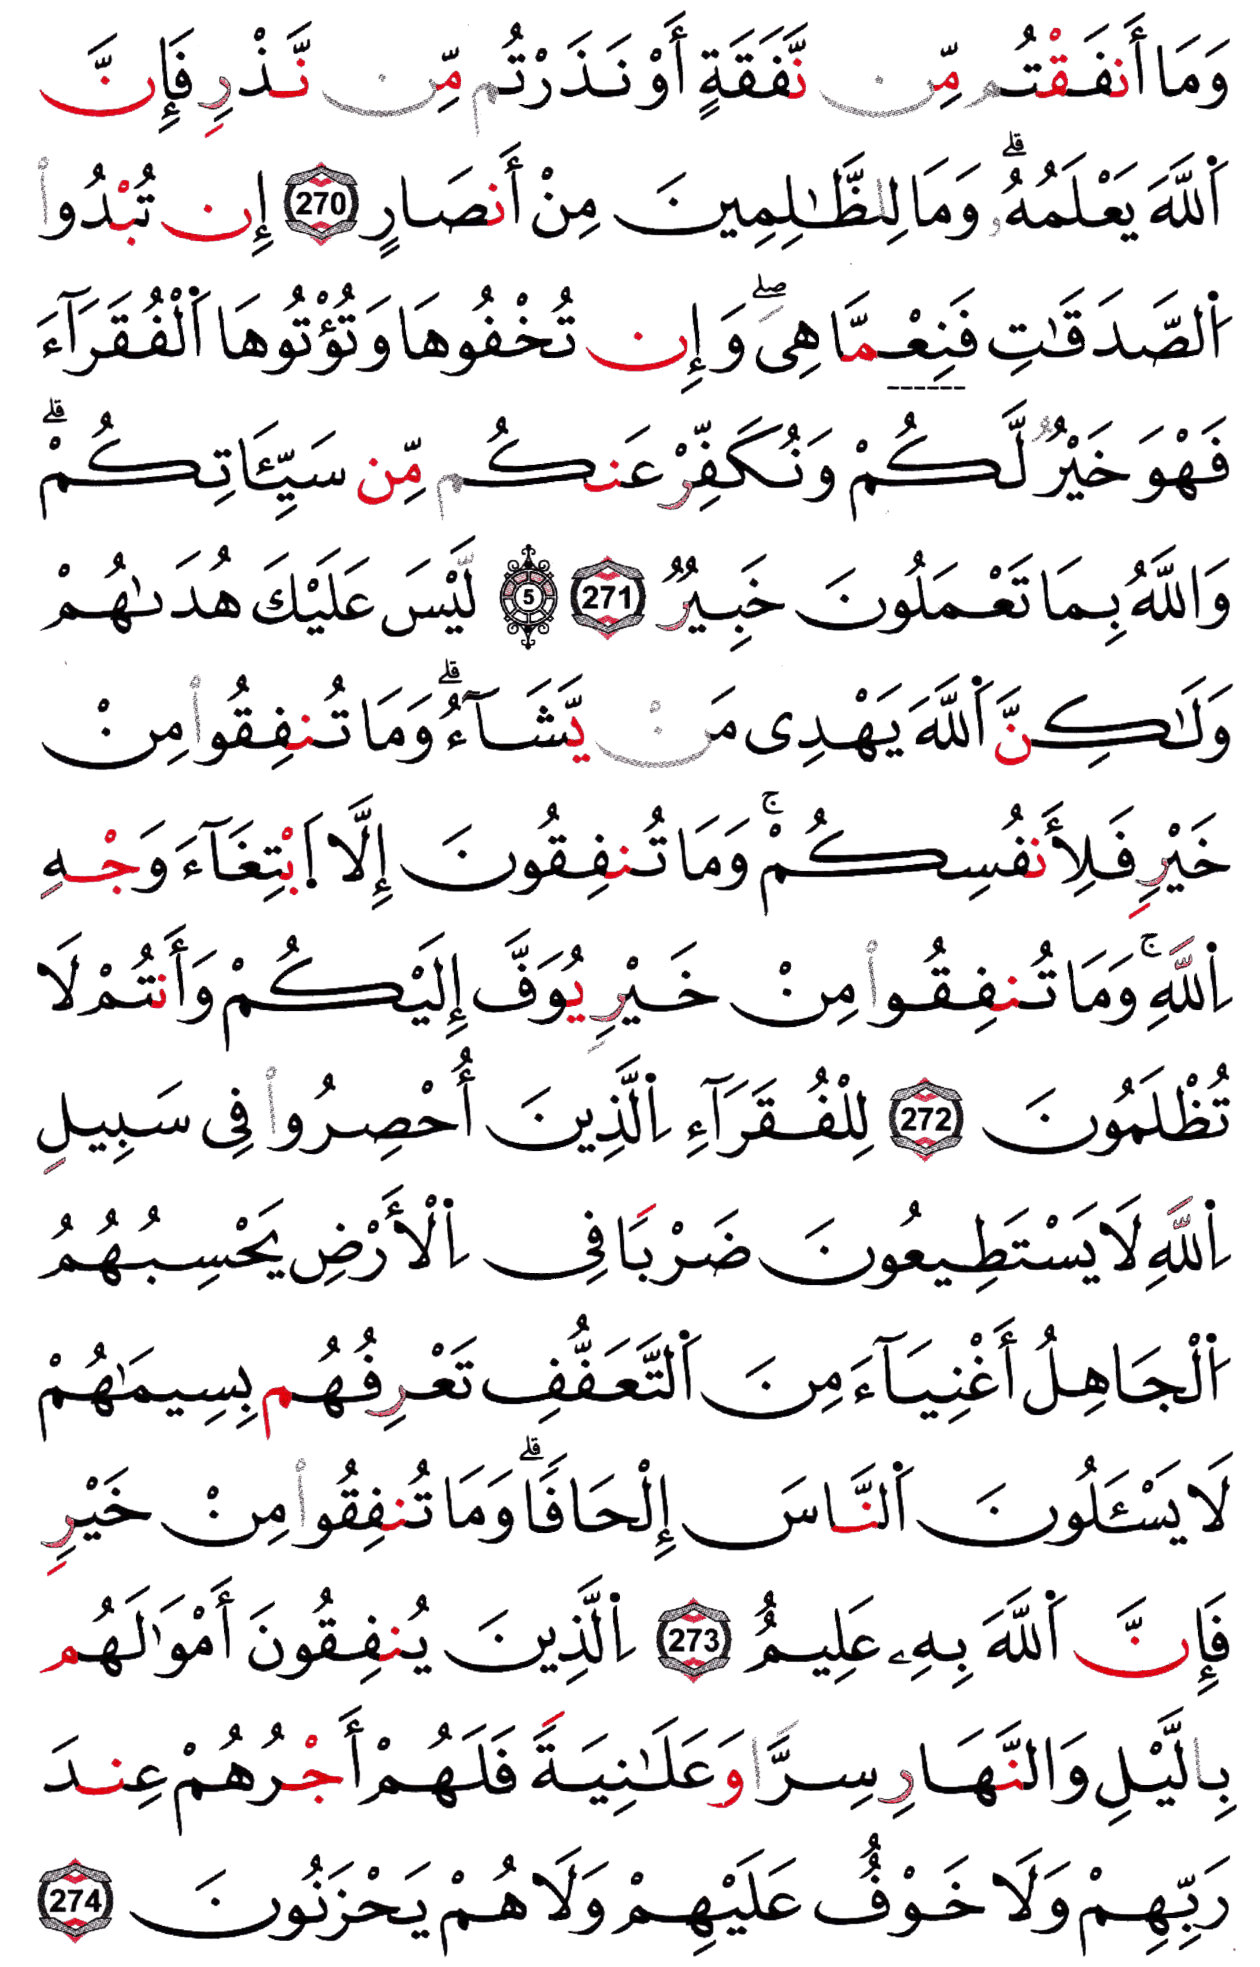 وَمَا أَنفَقْتُم مِّن نَّفَقَةٍ أَوْ نَذَرْتُم مِّن نَّذْرٍ فَإِنَّ
اَللَّهَ يَعْلَمُهُۥ ۗ وَمَا لِلظَّٰلِمِينَ مِنْ أَنصَارٍ 270 إِن تُبْدُواْ
اَلصَّدَقَٰتِ فَنِعْمَّا هِىَ ۖ وَإِن تُخْفُوهَا وَتُؤْتُوهَا اَلْفُقَرَآءَ
فَهْوَ خَيْرٌ لَّكُمْ وَنُكَفِّرْ عَنكُم مِّن سَيِّـَٔاتِكُمْ ۗ
وَاللَّهُ بِمَا تَعْمَلُونَ خَبِيرٌ 271 5 لَّيْسَ عَلَيْكَ هُدَىٰهُمْ
وَلَٰكِنَّ اَللَّهَ يَهْدِى مَنْ يَّشَآءُ ۗ وَمَا تُنفِقُواْ مِنْ
خَيْرٍ فَلِأَنفُسِكُمْ ۚ وَمَا تُنفِقُونَ إِلَّا اَبْتِغَآءَ وَجْهِ
اِللَّهِ ۚ وَمَا تُنفِقُواْ مِنْ خَيْرٍ يُوَفَّ إِلَيْكُمْ وَأَنتُمْ لَا
تُظْلَمُونَ 272 لِلْفُقَرَآءِ اِلَّذِينَ أُحْصِرُواْ فِى سَبِيلِ
اِللَّهِ لَا يَسْتَطِيعُونَ ضَرْبًا فِى اِلْأَرْضِ يَحْسِبُهُمُ
اَلْجَاهِلُ أَغْنِيَآءَ مِنَ اَلتَّعَفُّفِ تَعْرِفُهُم بِسِيمَٰهُمْ
لَا يَسْـَٔلُونَ اَلنَّاسَ إِلْحَافًا ۗ وَمَا تُنفِقُواْ مِنْ خَيْرٍ
فَإِنَّ اَللَّهَ بِهِۦ عَلِيمٌ 273 اِلَّذِينَ يُنفِقُونَ أَمْوَٰلَهُم
بِالَّيْلِ وَالنَّهَارِ سِرًّا وَعَلَٰنِيَةً فَلَهُمْ أَجْرُهُمْ عِندَ
رَبِّهِمْ وَلَا خَوْفٌ عَلَيْهِمْ وَلَا هُمْ يَحْزَنُونَ 274